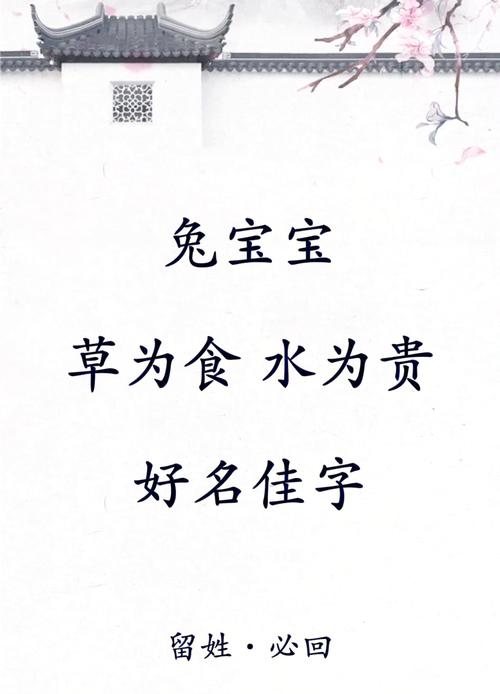 兔宝宝
草为食 水为贵
好名佳字
留姓·必回